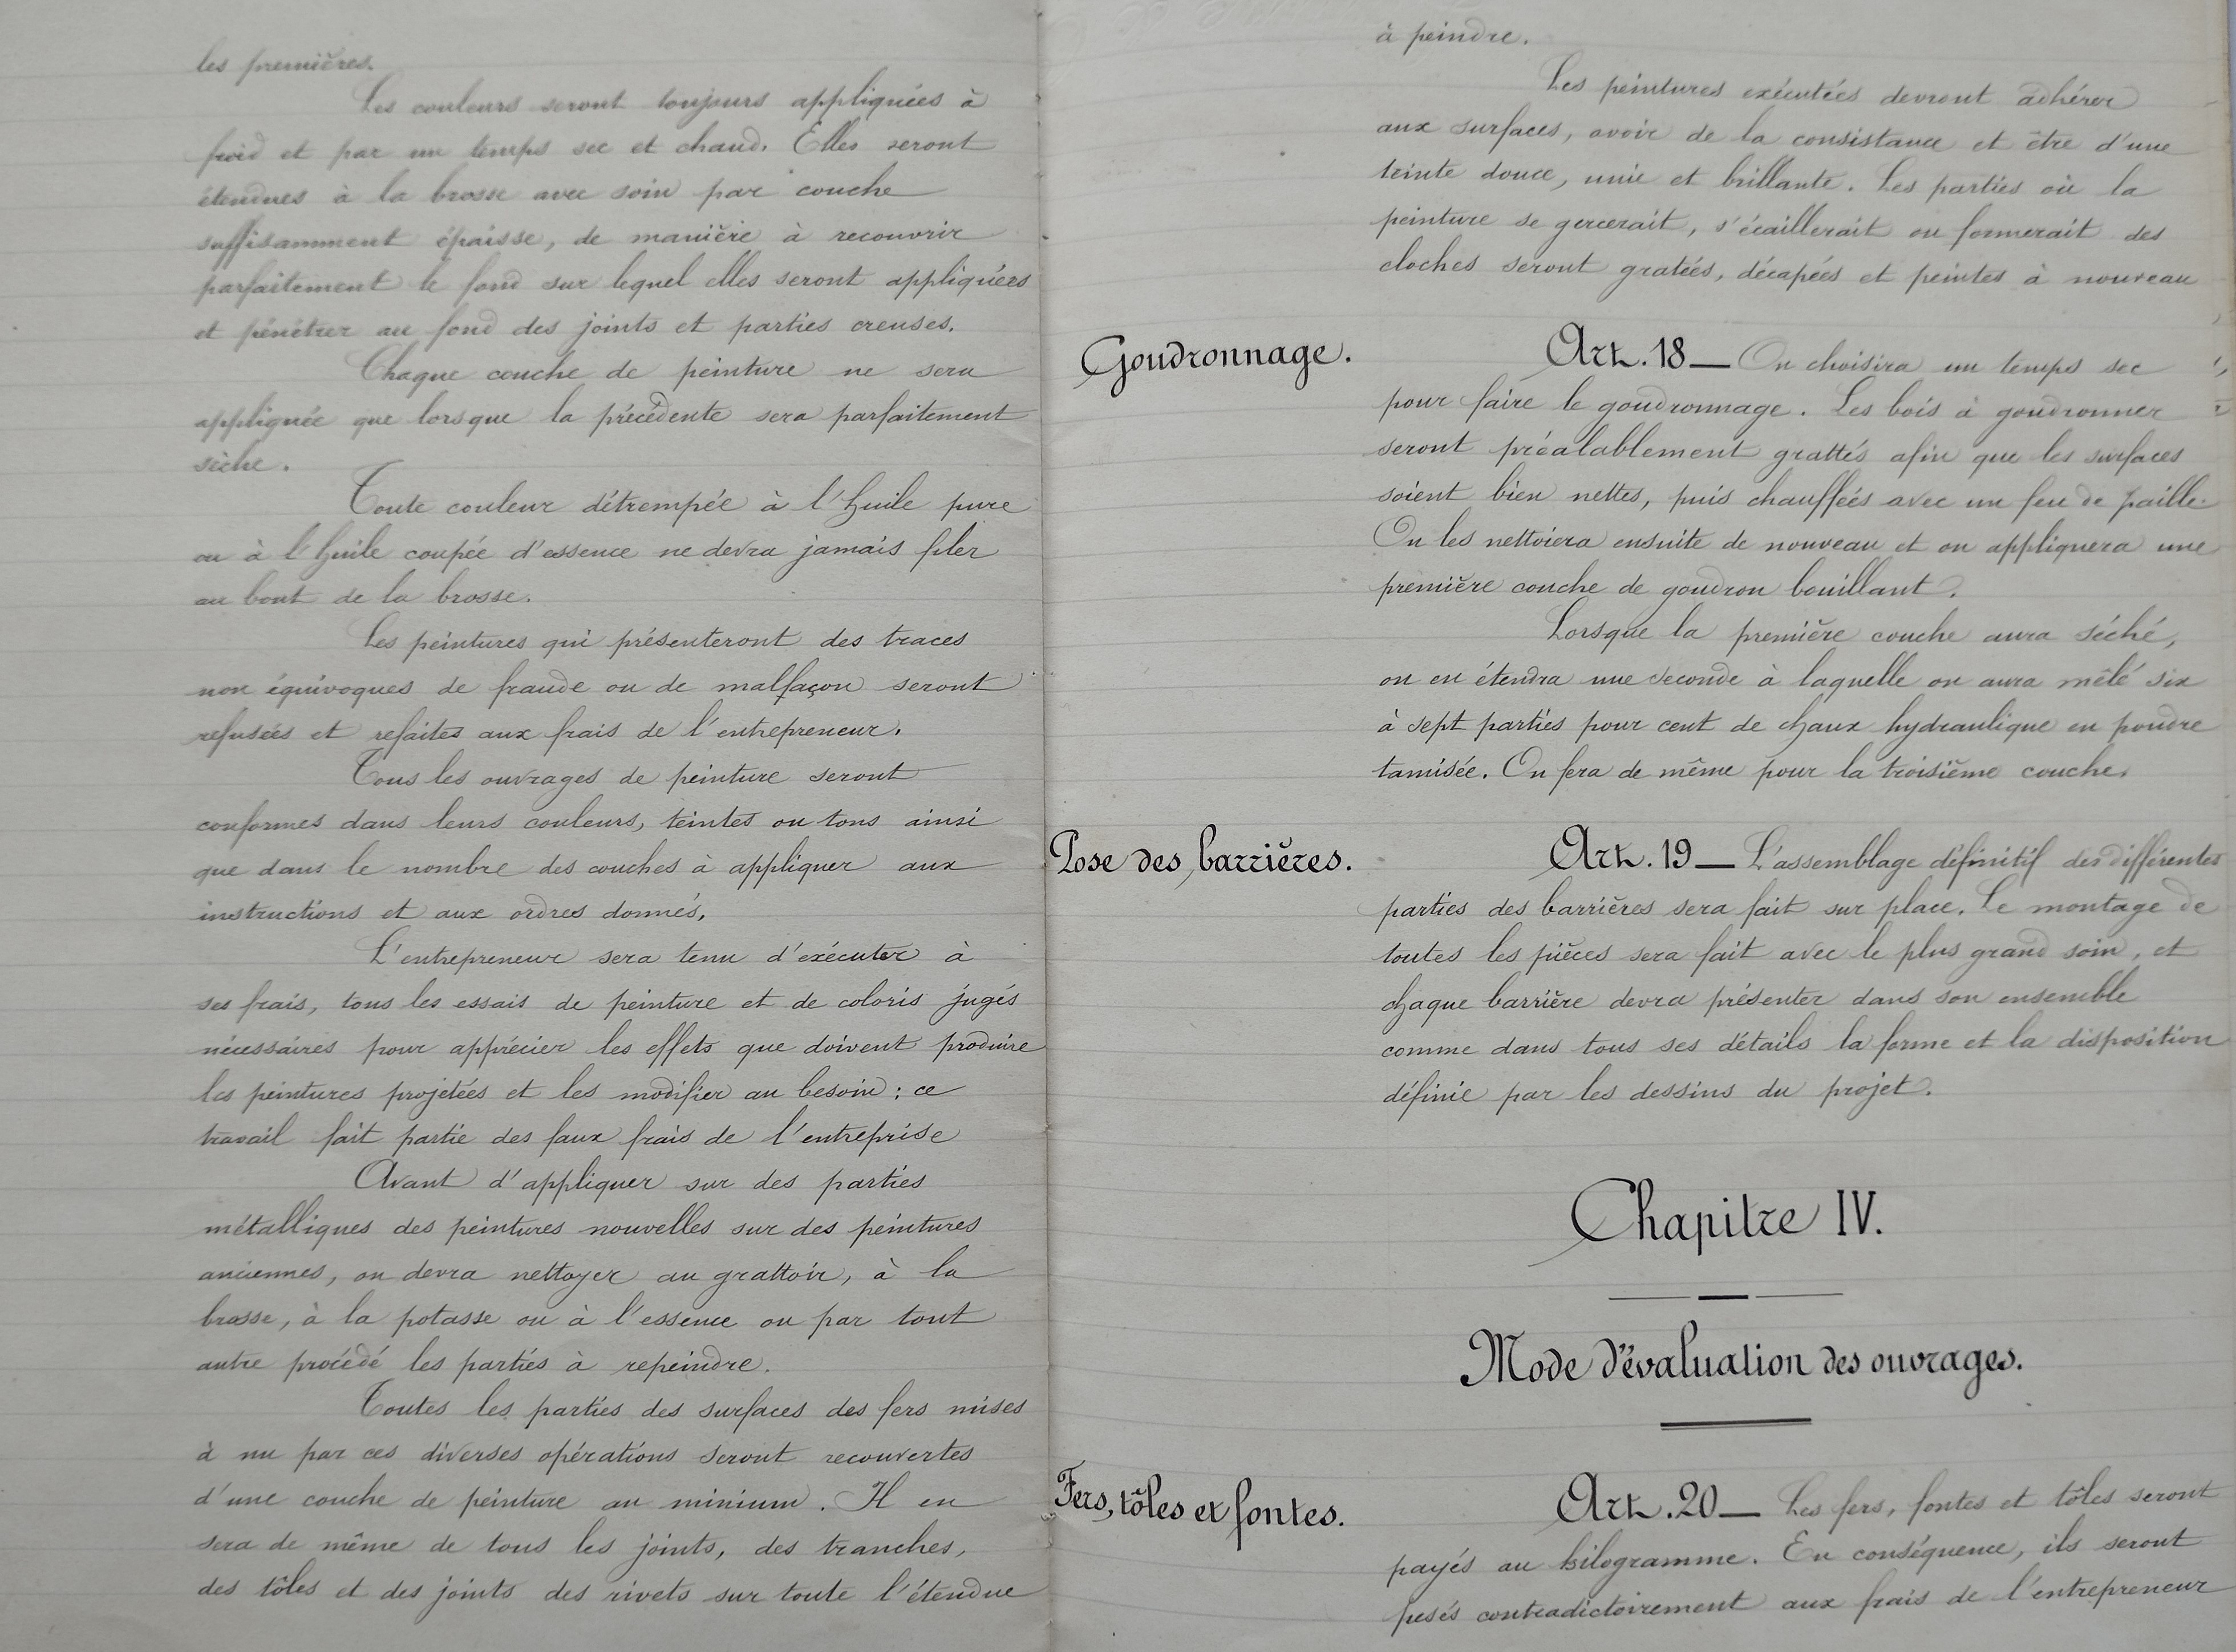 les premières.
Les couleurs seront toujours appliquées à
froid et par un temps sec et chaud. Elles seront
étendues à la brosse avec soin par couche
suffisamment épaisse, de manière à recouvrir
parfaitement le fond sur lequel elles seront appliquées
et pénétrer au fond des joints et parties creuses.
Chaque couche de peinture ne sera
appliquée que lorsque la précédente sera parfaitement
sèche.
Toute couleur détrempée à l'huile pure
ou à l'huile coupée d'essence ne devra jamais filer
au bout de la brosse.
Les peintures qui présenteront des traces
non équivoques de fraude ou de malfaçon seront
refusées et refaites aux frais de l'entrepreneur.
Tous les ouvrages de peinture seront
conformes dans leurs couleurs, teintes ou tons ainsi
que dans le nombre des couches à appliquer aux
instructions et aux ordres donnés.
L'entrepreneur sera tenu d'exécuter à
ses frais, tous les essais de peinture et de coloris jugés
nécessaires pour apprécier les effets que doivent produire
les peintures projetées et les modifier au besoin ; ce
travail fait partie des faux frais de l'entreprise
Avant d'appliquer sur des parties
métalliques des peintures nouvelles sur des peintures
anciennes, on devra nettoyer au grattoir, à la
brosse, à la potasse ou à l'essence ou par tout
autre procédé les parties à repeindre.
Toutes les parties des surfaces des fers mises
à nu par ces diverses opérations seront recouvertes
d'une couche de peinture au minium. Il en
sera de même de tous les joints, des tranches,
des tôles et des joints des rivets sur toute l'étendue
à peindre.
Les peintures exécutées devront adhérer
aux surfaces, avoir de la consistance et être d'une
teinte douce, unie et brillante. Les parties où la
peinture se gercerait, s'écaillerait ou formerait des
cloches seront gratées, décapées et peintes à nouveau
Goudronnage.
Art. 18 — On choisira un temps sec
pour faire le goudronnage. Les bois à goudronner
seront préalablement grattés afin que les surfaces
soient bien nettes, puis chauffées avec un feu de paille.
On les nettoiera ensuite de nouveau et on appliquera une
première couche de goudron bouillant.
Lorsque la première couche aura séché,
on en étendra une seconde à laquelle on aura mêlé six
à sept parties pour cent de chaux hydraulique en poudre
tamisée. On fera de même pour la troisième couche.
Pose des barrières.
Art. 19 — L'assemblage définitif des différentes
parties des barrières sera fait sur place. Le montage de
toutes les pièces sera fait avec le plus grand soin, et
chaque barrière devra présenter dans son ensemble
comme dans tous ses détails la forme et la disposition
définie par les dessins du projet.
Chapitre IV.
Mode d'évaluation des ouvrages.
Fers, tôles et fontes.
Art. 20 — Les fers, fontes et tôles seront
payés au kilogramme. En conséquence, ils seront
pesés contradictoirement aux frais de l'entrepreneur